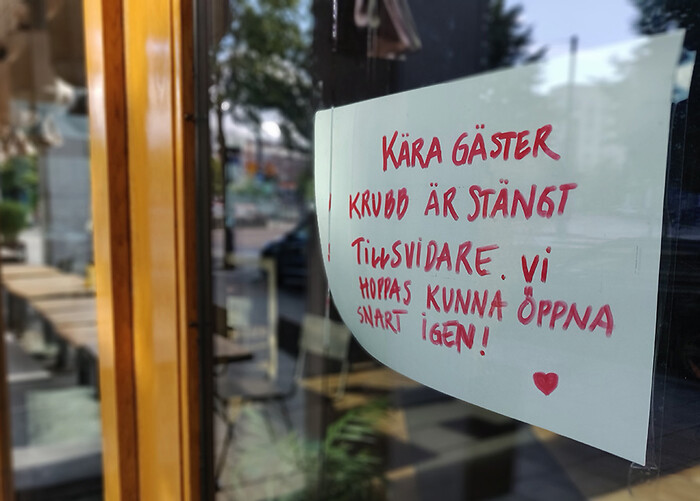 KÄRA GÄSTER
KRUBB ÄR STÄNGT
TILLSVIDARE. Vi
HOPPAS KUNNA ÖPPNA
SNART iGEN!